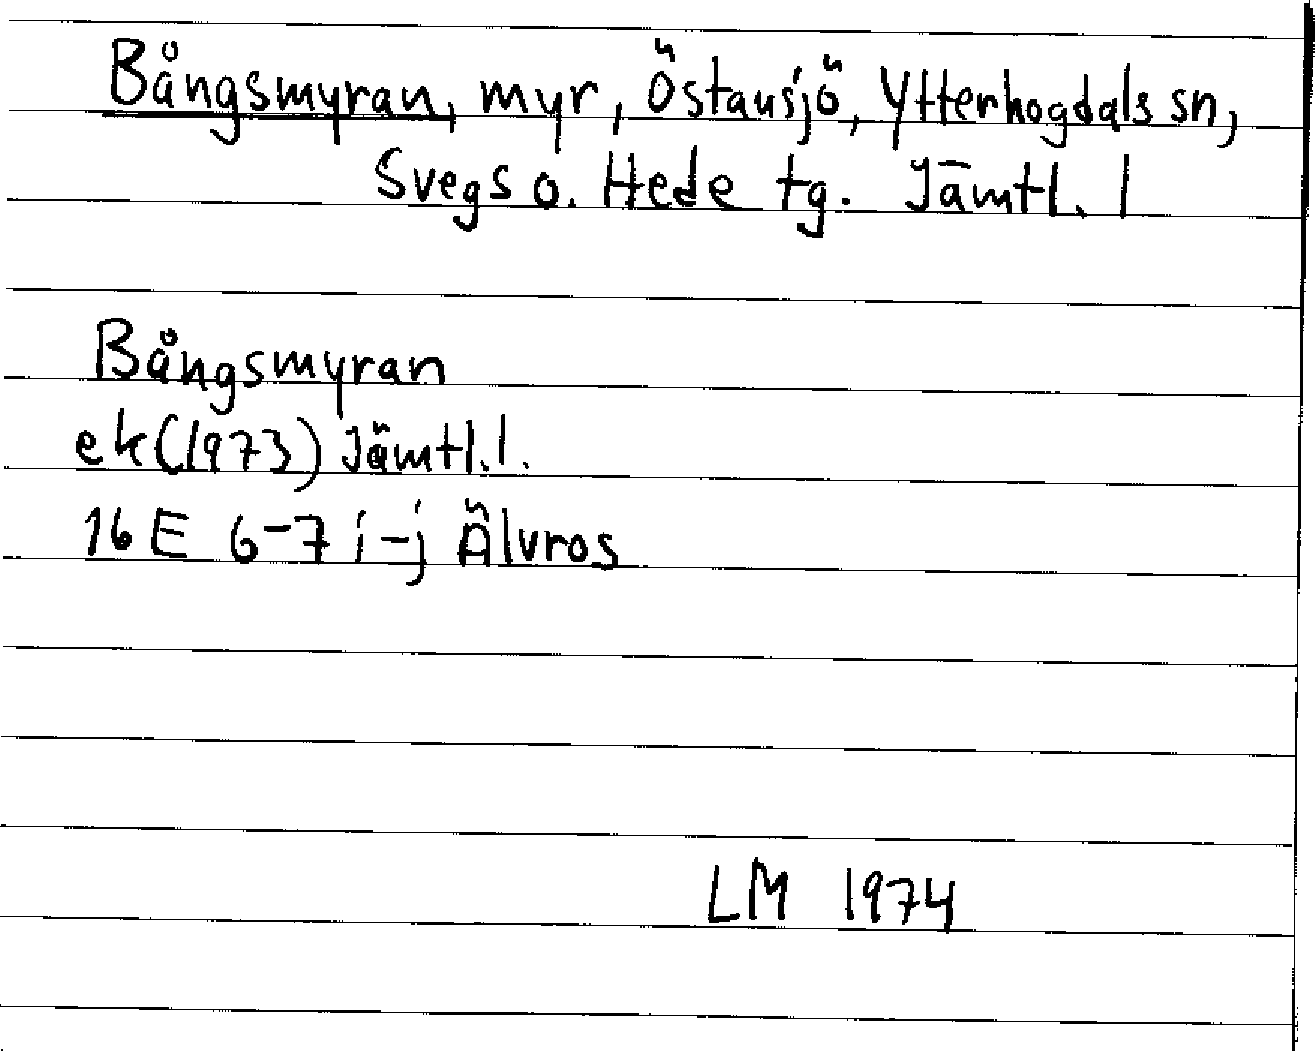 Bångsmyran, myr, Östansjö, Ytterhogdals sn,
Svegs o. Hede tg. Jämtl. l
Bångsmyran
ek (1973) Jämtl. l.
16 E 6-7 i-j Älvros
LM 1974